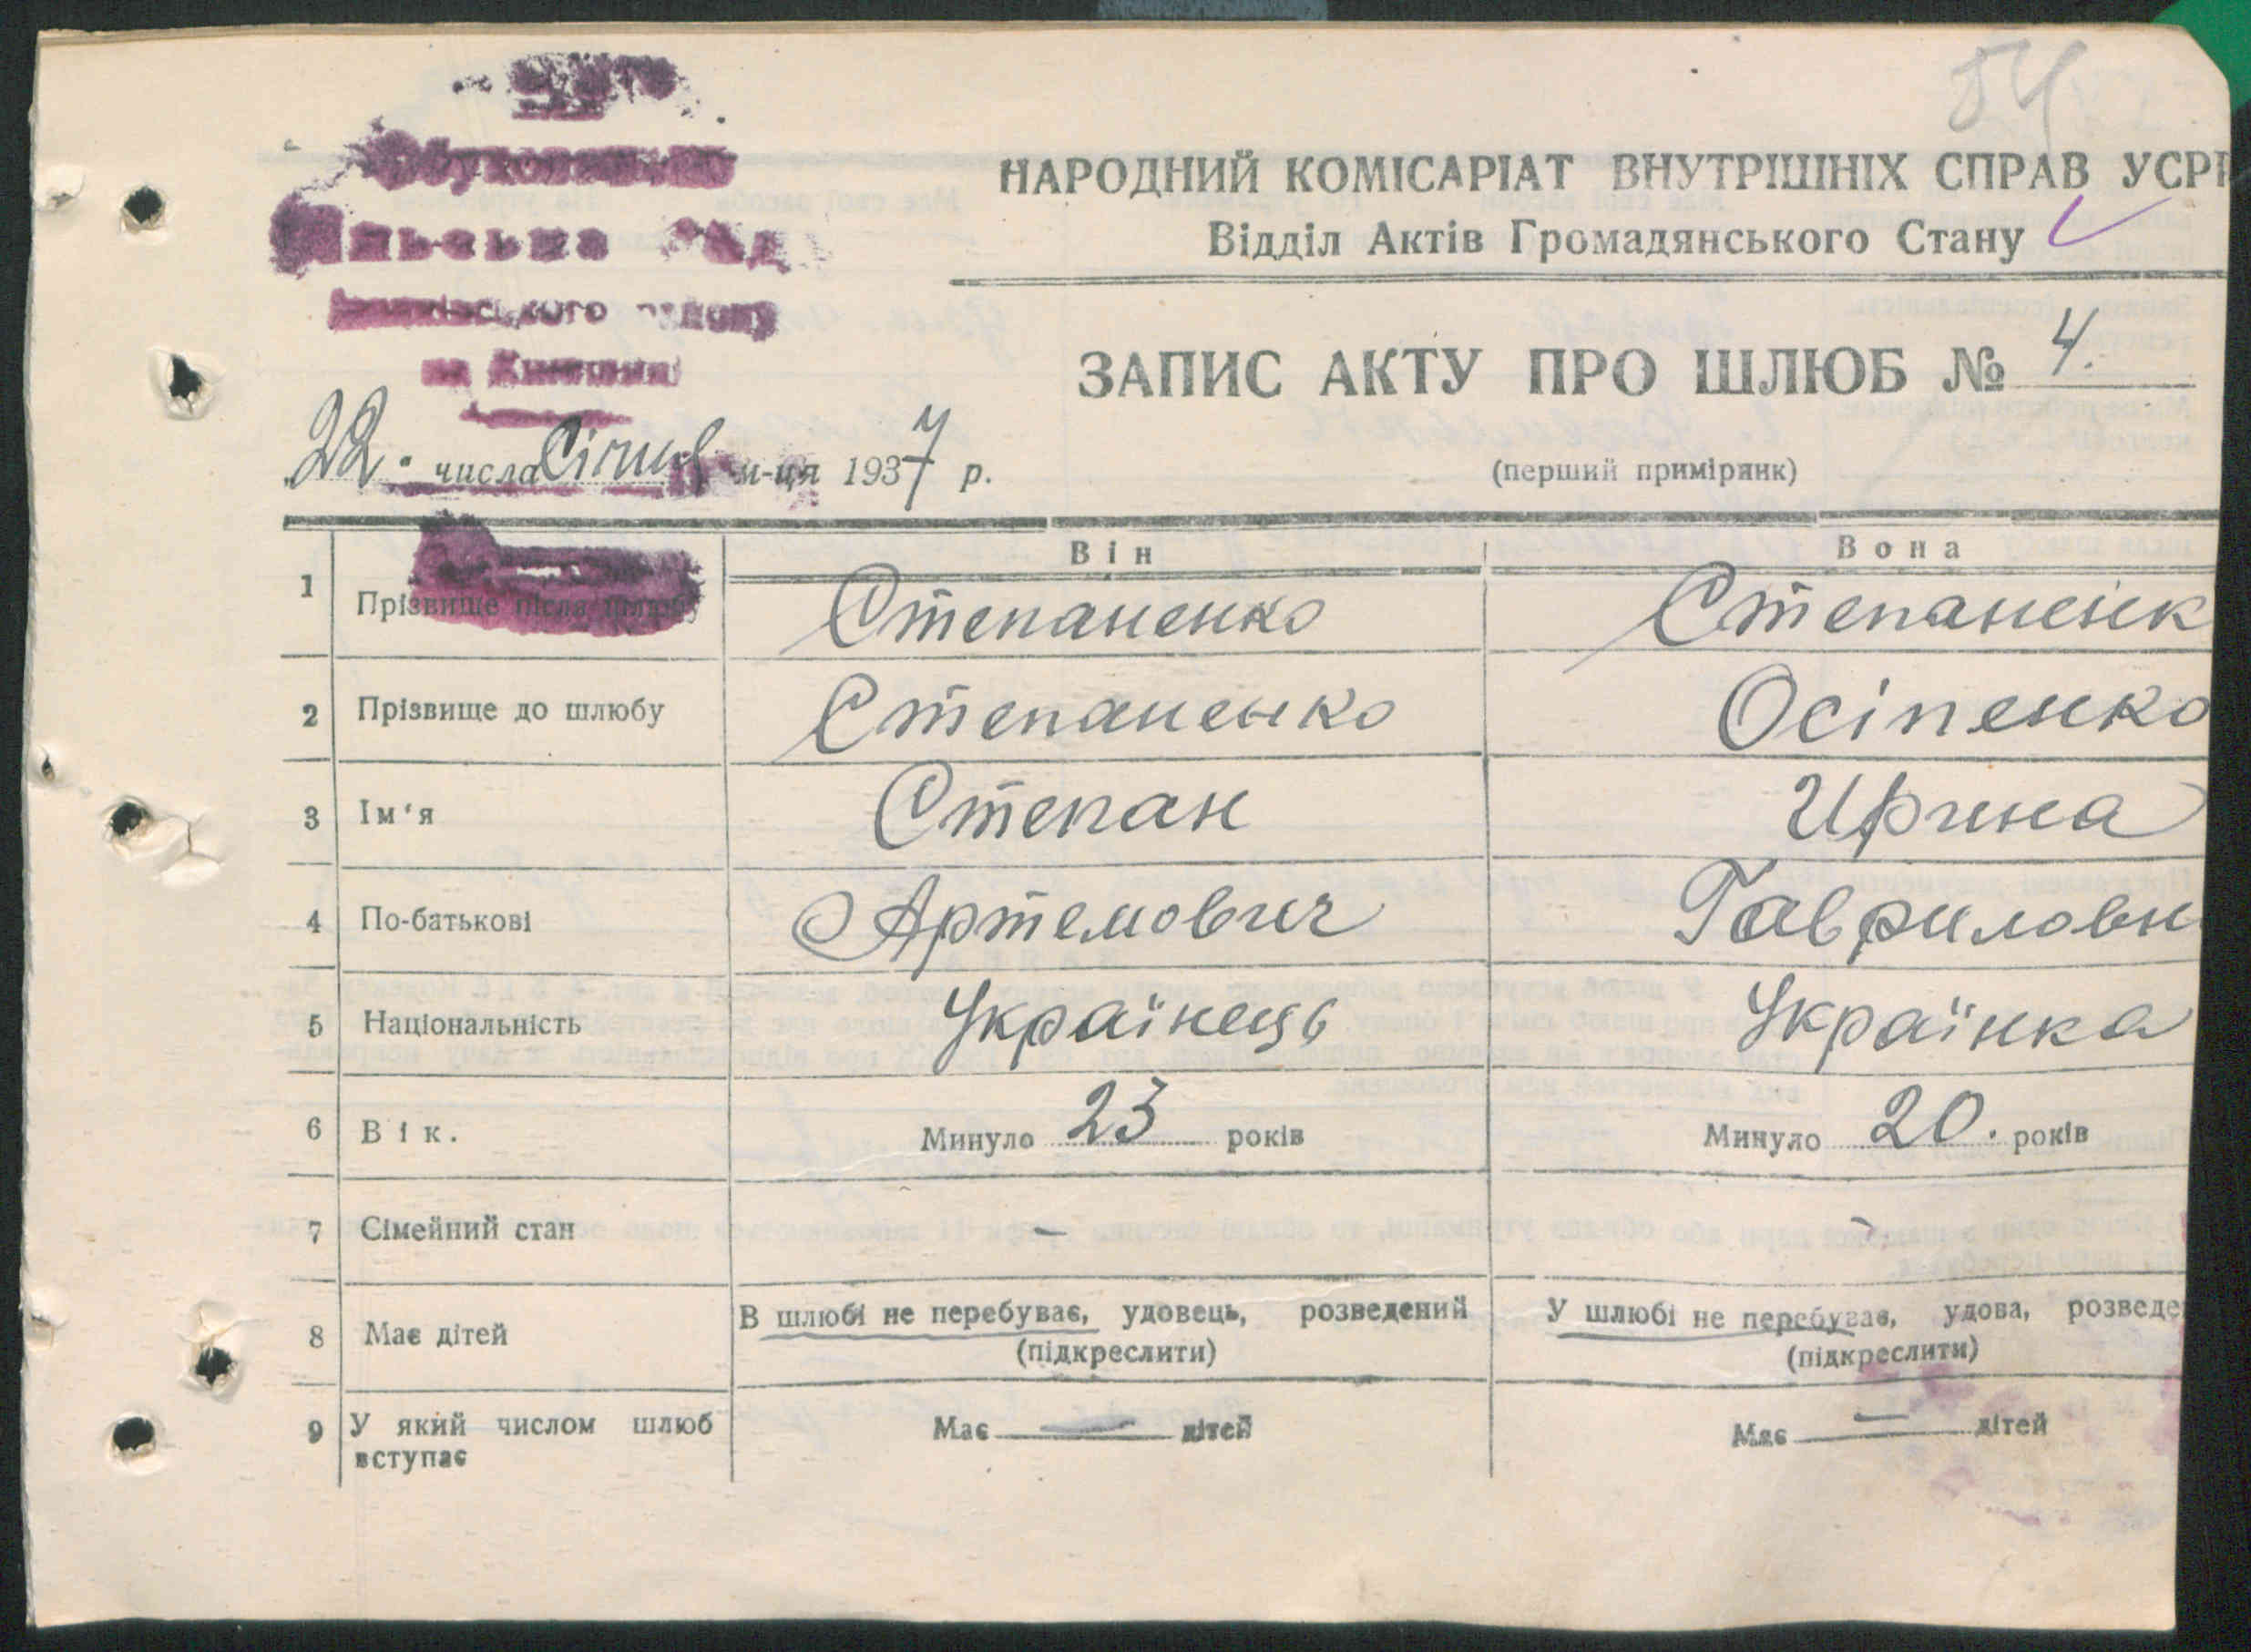 54
НАРОДНИЙ КОМІСАРІАТ ВНУТРІШНІХ СПРАВ УСРР
Відділ Актів Громадянського Стану
району
ЗАПИС АКТУ ПРО ШЛЮБ № 4.
22 числа Січня м-ця 1937 р.
(перший примірянк)
Він Вона
1 Прізвище після шлюбу Степаненко Степаненк
2 Прізвище до шлюбу Степаненко Осіпенко
3 Ім'я Степан Ирина
4 По-батькові Артемович Гавриловн
5 Національність Українець Українка
6 Вік. Минуло 23 років Минуло 20. років
7 Сімейний стан – –
8 Має дітей В шлюбі не перебуває, удовець, розведений У шлюбі не перебуває, удова, розведе
(підкреслити) (підкреслити)
9 У який числом шлюб вступає Має — дітей Має — дітей